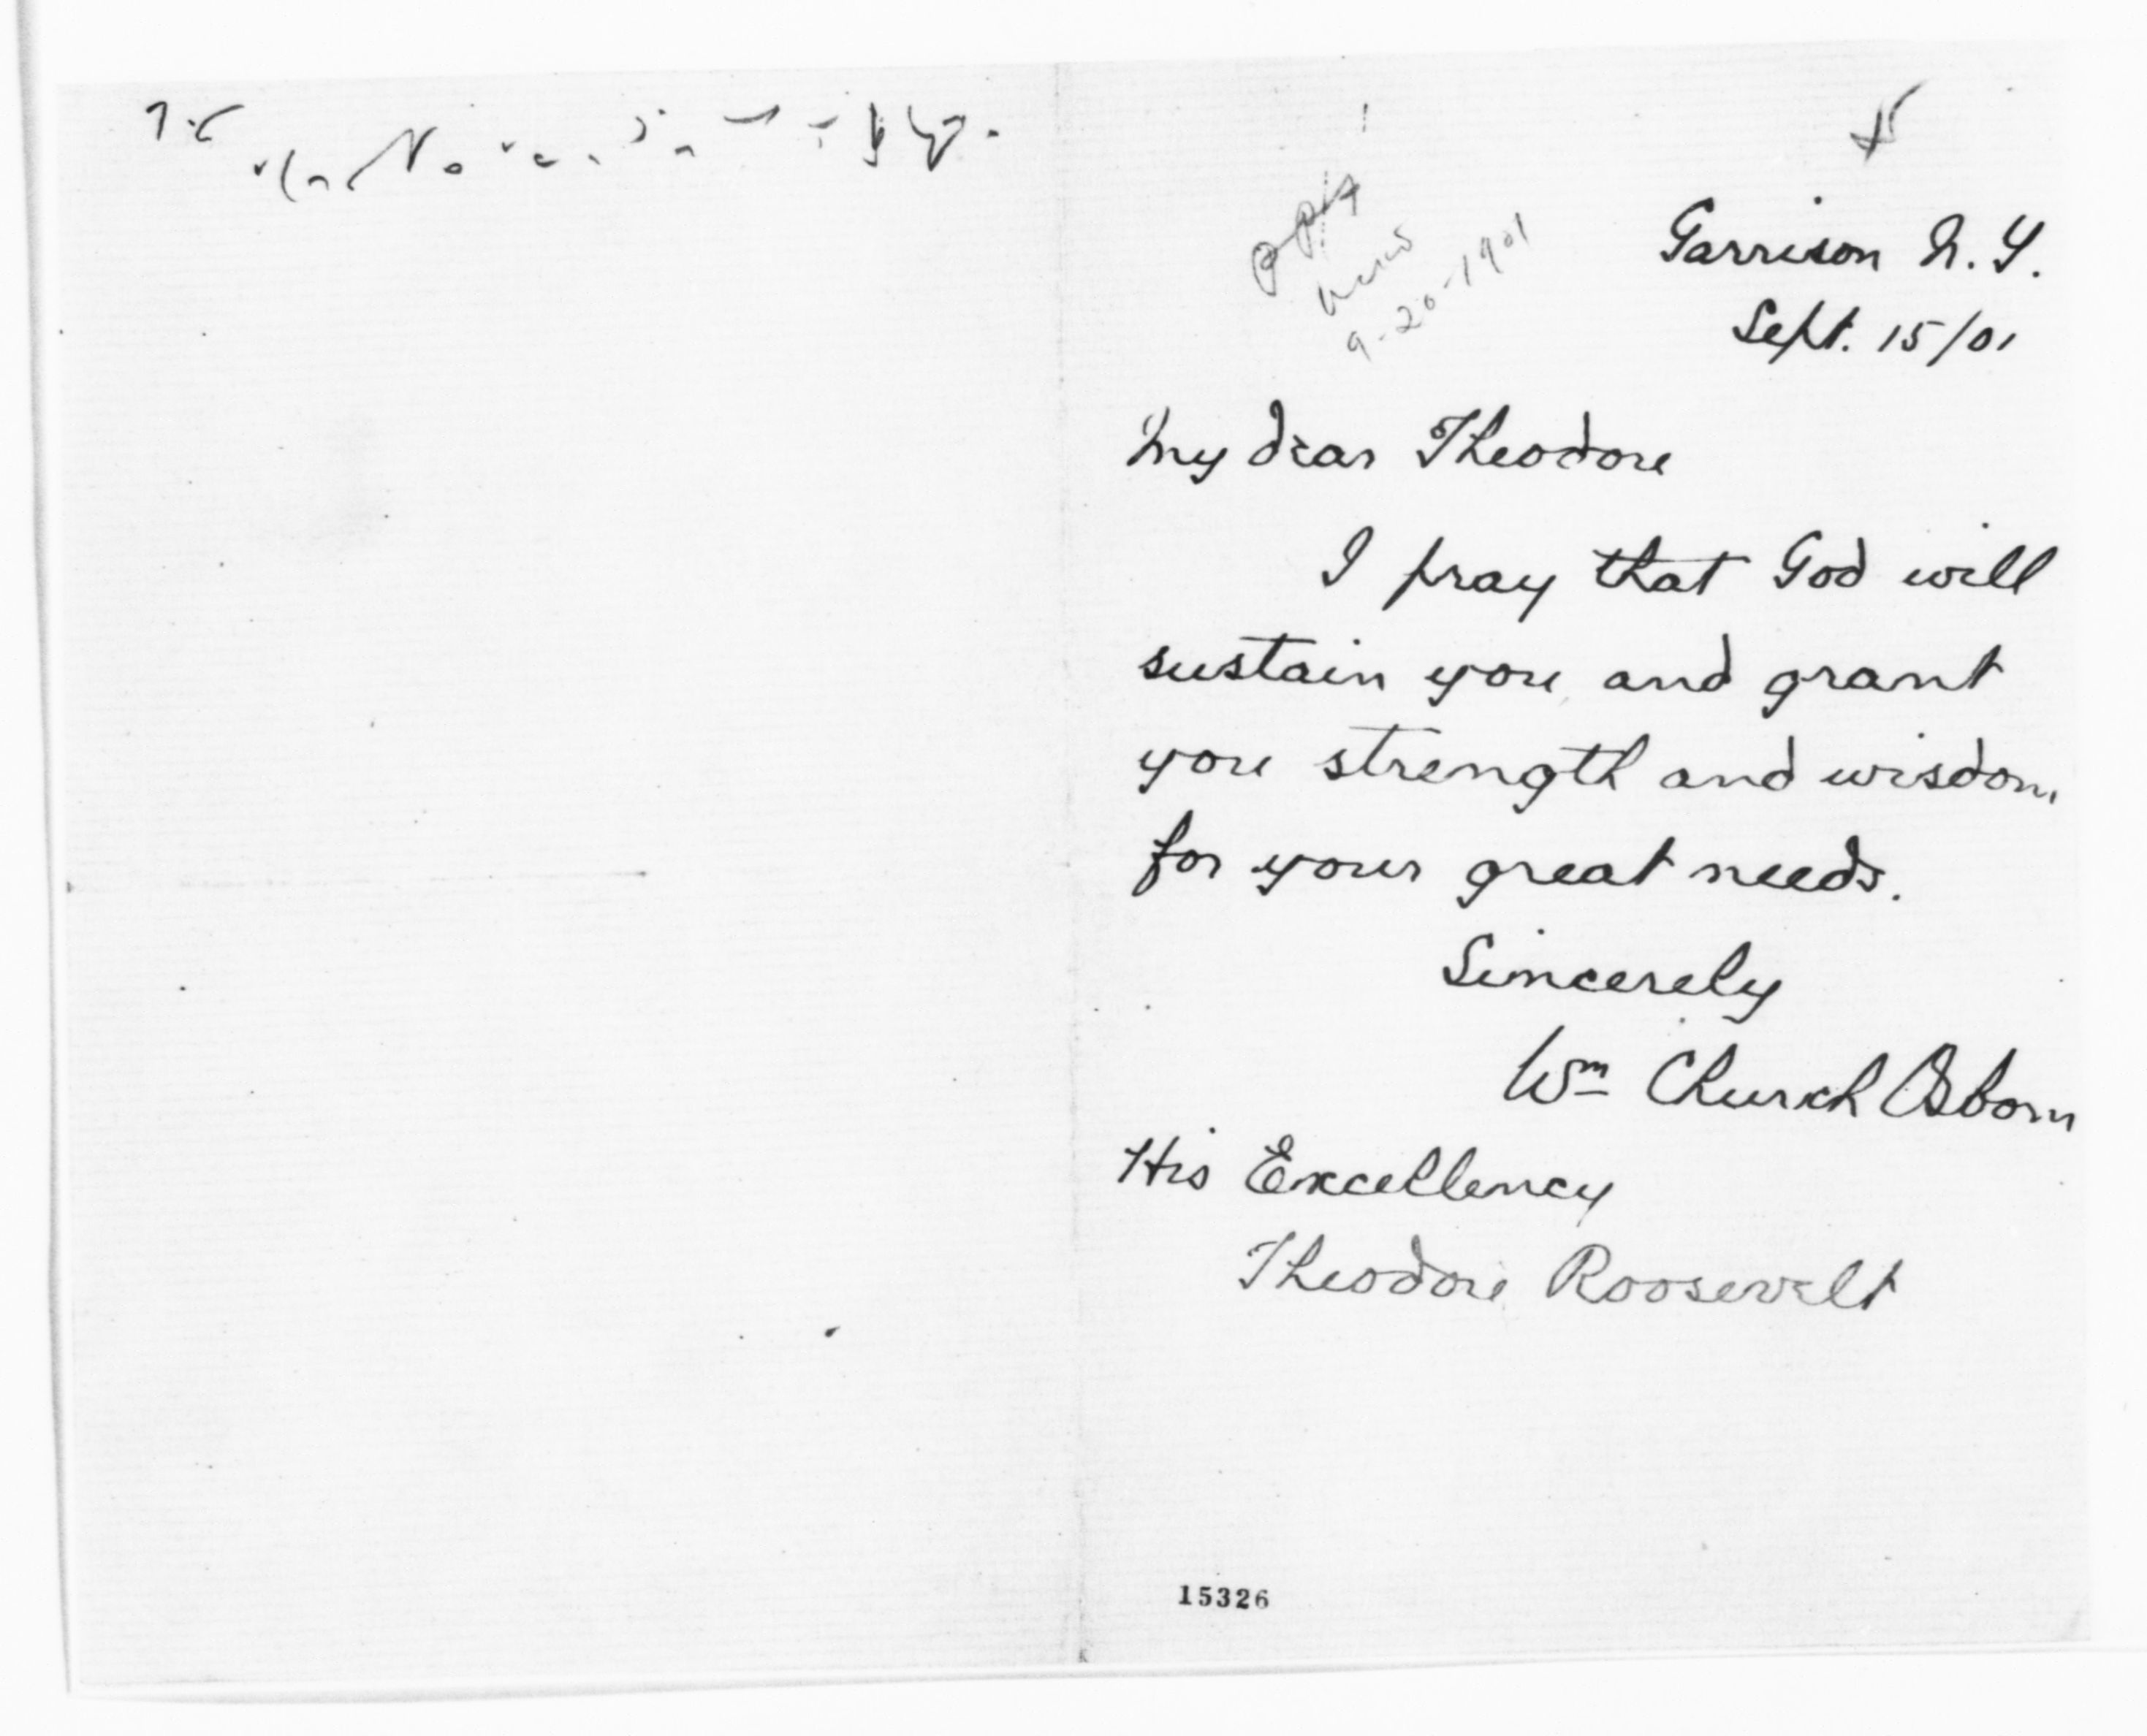 9-20-1901
Garrison N.Y.
Sept. 15/01
My dear Theodore
I pray that God will
sustain you and grant
you strength and wisdom
for your great needs.
Sincerely
Wm Church Osborn
His Excellency
Theodore Roosevelt
15326